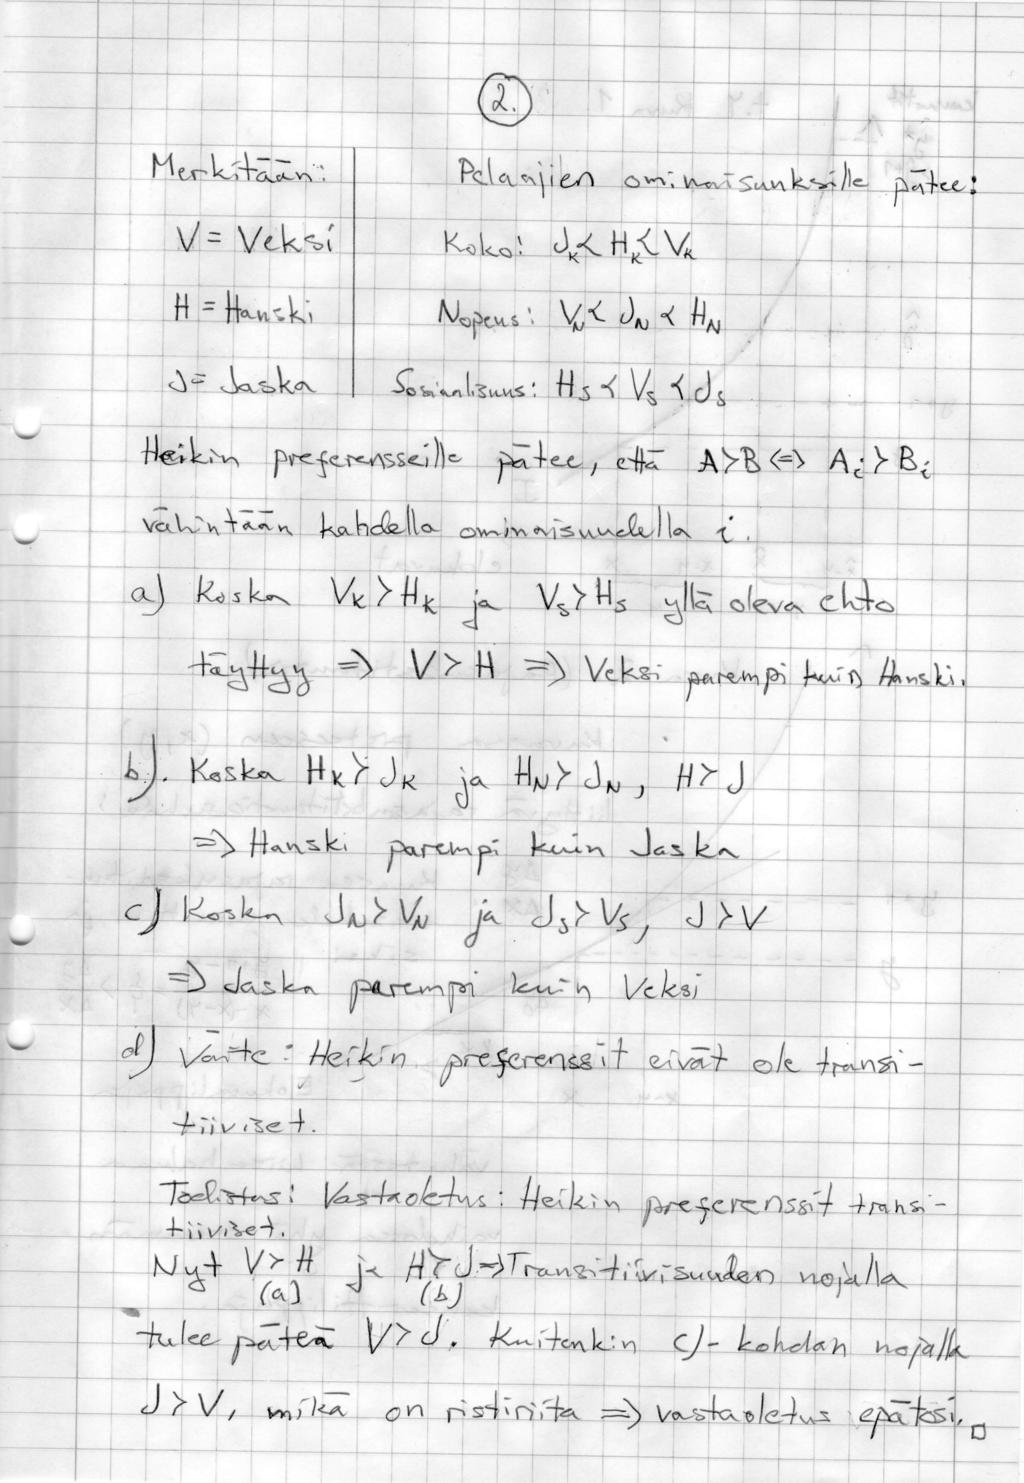 2.
Merkitään: Pelaajien ominaisuuksille pätee:
V = Veksi Koko: J_K ≺ H_K ≺ V_K
H = Hanski Nopeus: V_N ≺ J_N ≺ H_N
J = Jaska Sosiaalisuus: H_S ≺ V_S ≺ J_S
Heikin preferensseille pätee, että A≻B <=> A_i ≻ B_i
vähintään kahdella ominaisuudella i.
a) Koska V_K ≻ H_K ja V_S ≻ H_S yllä oleva ehto
täyttyy => V ≻ H => Veksi parempi kuin Hanski.
b). Koska H_K ≻ J_K ja H_N ≻ J_N, H ≻ J
=> Hanski parempi kuin Jaska
c) Koska J_N ≻ V_N ja J_S ≻ V_S, J ≻ V
=> Jaska parempi kuin Veksi
d) Väite: Heikin preferenssit eivät ole transi-
tiiviset.
Todistus: Vastaoletus: Heikin preferenssit transi-
tiiviset.
Nyt V ≻ H ja H ≻ J => Transitiivisuuden nojalla
(a) (b)
tulee päteä V ≻ J. Kuitenkin c)-kohdan nojalla
J ≻ V, mikä on ristiriita => vastaoletus epätosi. □